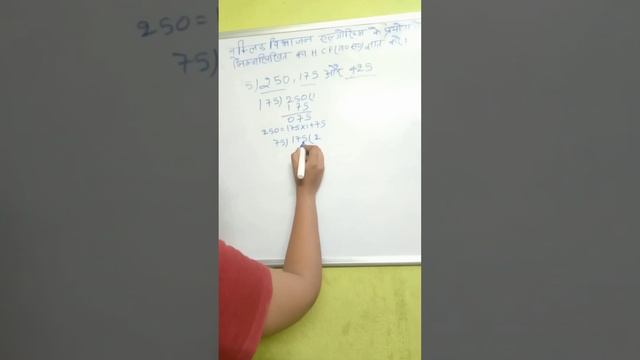 यूक्लिड विभाजन एल्गोरिथ्म के प्रयोग
निम्नलिखित का HCF (म०स०) ज्ञात करें।
5) 250, 175 और 425
175) 250 (1
175
075
250 = 175 x 1 + 75
75) 175 ( 2